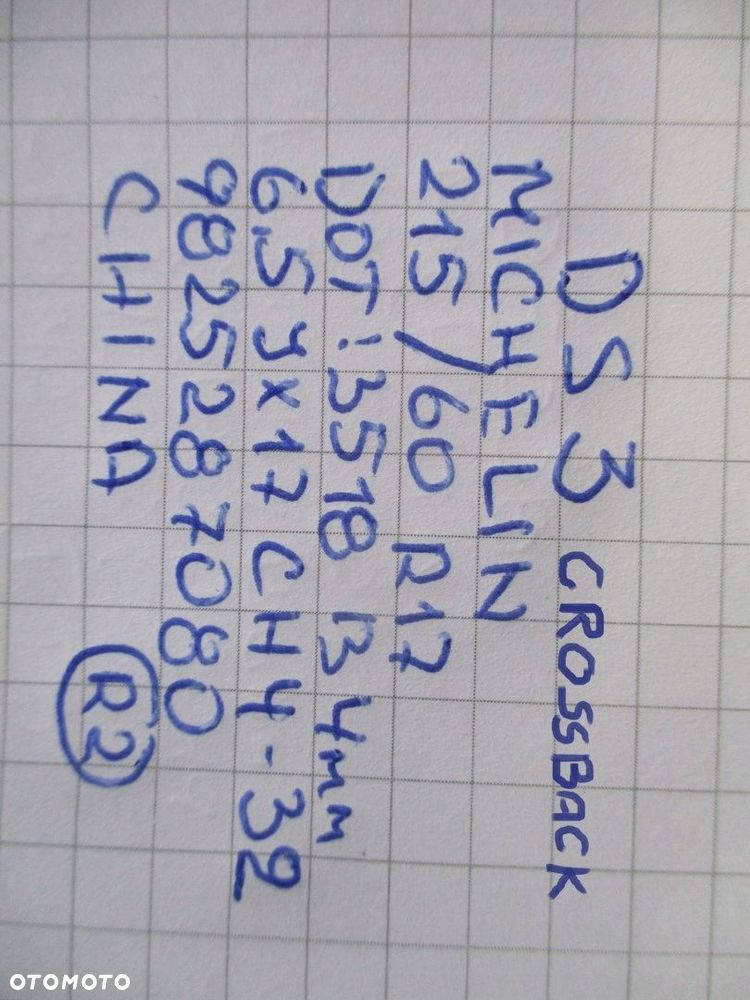 DS 3 CROSSBACK
MICHELIN
215/60 R17
DOT: 3518 B 4mm
6,5 J x 17 CH 4 - 32
9825287080
CHINA R2
OTOMOTO